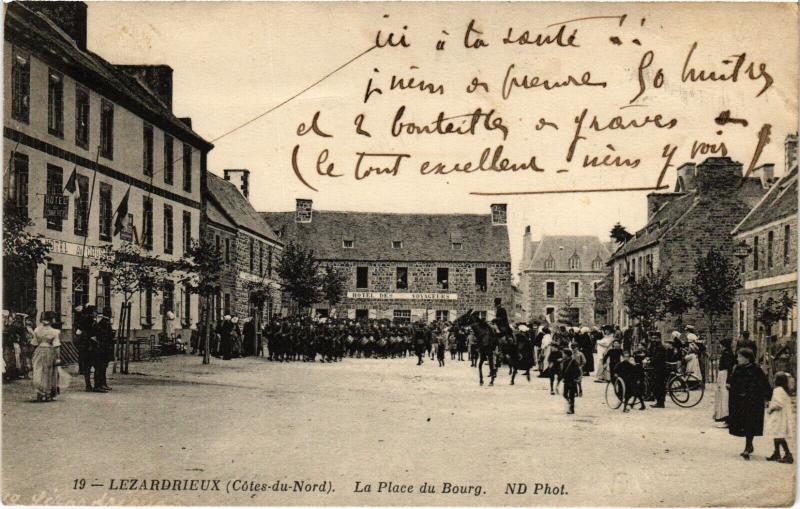 ici à ta santé !!
je viens de prendre 50 huitres
et 2 bouteilles de graves
(le tout excellent - viens y voir)
HOTEL
HOTEL
HOTEL DES VOYAGEURS
19 - LEZARDRIEUX (Côtes-du-Nord). La Place du Bourg. ND Phot.